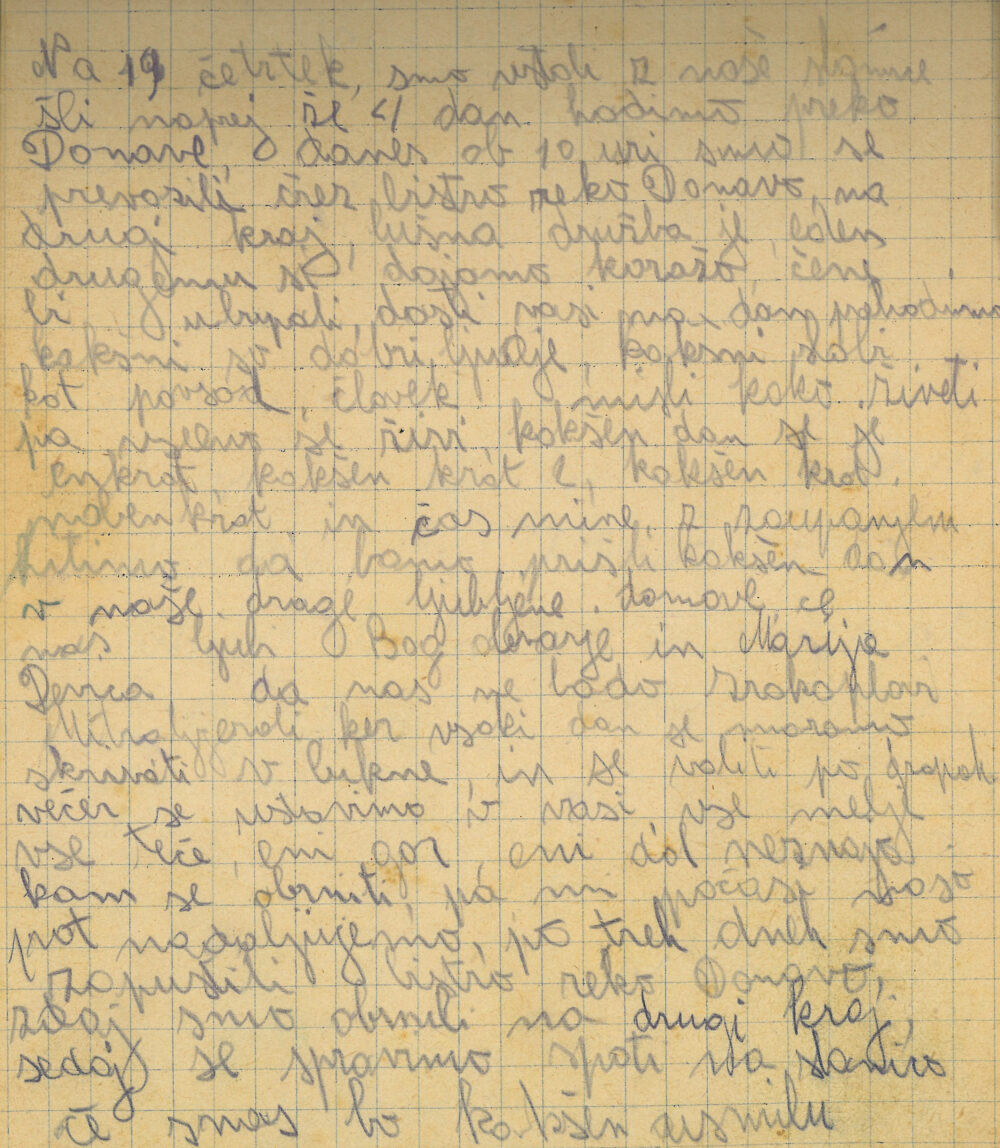 Na 19 četrtek, smo vstali z naše slame
šli naprej že 4 dan hodimo preko
Donave, danes ob 10 uri smo se
prevozili črez bistro reko Donavo, na
drugi kraj, lušna družba je, eden
drugemu se dajamo koražo, če ne
bi ubupali, dosti vasi na dan prehodimo
kakšni so dobri ljudje, kakšni slabi
kot povsod, človek misli kako živeti
pa vseeno se živi, kakšen dan se je
enkrat, kakšen krat 2, kakšen krat
noben krat in čas mine, z zaupanjem
hitimo da bomo prišli kakšen dan
v naše drage ljubljene domove, če
nas ljubi Bog obvarje in Marija
Devica da nas ne bodo zrakoplovi
Mitraljezirali ker vsaki dan se moramo
skrivati v lukne, in se valiti po grapah
večer se ustavimo v vasi vse medje
vse teče, eni gor, eni dol neznajo
kam se obrniti, pa mi počasi našo
pot nadaljujemo, po treh dneh smo
zapustili bistro reko Donavo,
zdaj smo obrnili na drugi kraj,
sedaj se spravimo spati na slamco
če smas bo kakšen usmilu